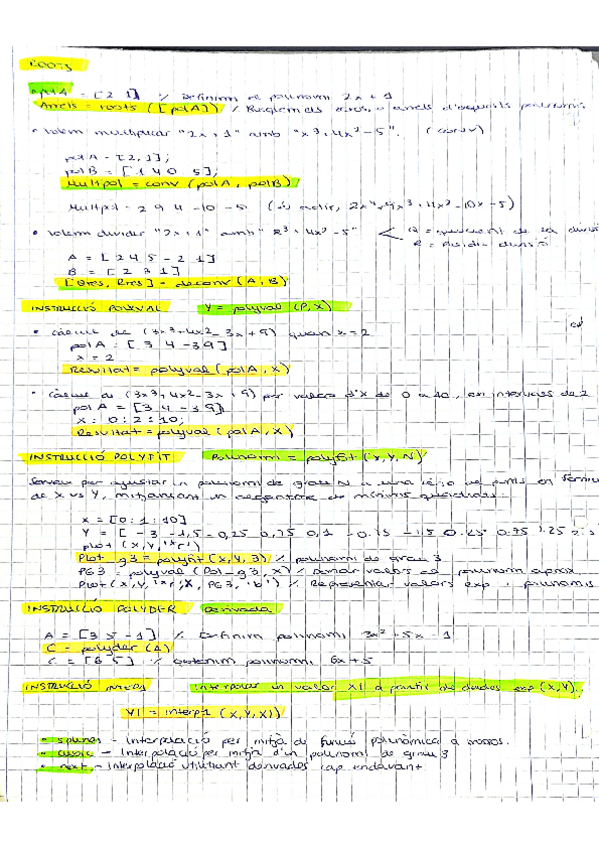 ROOTS
polA = [2 1] % Definim el polinomi 2x + 1
Arrels = roots ([polA]) / o arrels d'aquells polinomis
• Volem multiplicar "2x + 1" amb "x³ + 4x² - 5". (conv)
polA = [2, 1];
polB = [1 4 0 5];
Multpol = conv (polA, polB)
Multpol = 2 9 4 -10 -5 (és a dir, 2x⁴+9x³+4x²-10x-5)
• Volem dividir "2x + 1" amb "x³ + 4x² - 5"
A = [2 4 5 -2 1]
B = [2 3 1]
[Qres, Rres] = deconv (A, B)
INSTRUCCIÓ POLYVAL Y = polyval (P, X)
• Càlcul de (3x³+4x²-3x+9) quan x = 2
polA = [3 4 -3 9]
x = 2
Resultat = polyval (polA, x)
• Càlcul de (3x³+4x²-3x+9) per valors d'X de 0 a 10, en intervals de 2
polA = [3 4 -3 9]
x = 0:2:10;
Resultat = polyval (polA, X)
INSTRUCCIÓ POLYFIT Polinomi = polyfit (X, Y, N)
Serveix per ajustar un polinomi de grau N a una sèrie de punts en
de X vs Y, mitjançant un algoritme de mínims quadrats.
X = [0:1:10]
Y = [-3 -1,5 -0,25 0,75 0,1
plot (X, Y, '*r')
Pol_g3 = polyfit (X, Y, 3) % polinomi de grau 3
PG3 = polyval (Pol_g3, X) % valors polinomi aprox.
Plot (X, Y, '*r', X, PG3, 'b') % Representar valors exp i polinomis
INSTRUCCIÓ POLYDER Derivada
A = [3 5 -1] % Definim polinomi 3x² + 5x - 1
C = polyder (A)
C = [6 5] % obtenim polinomi 6x + 5
INSTRUCCIÓ INTERP1 Interpolar un valor XI a partir de dades exp (X, Y).
YI = interp1 (X, Y, XI)
• splines - Interpolació per mitjà de funció polinòmica a trossos
• cubic - Interpolació per mitjà d'un polinomi de grau 3
• next - Interpolació utilitzant derivades cap endavant